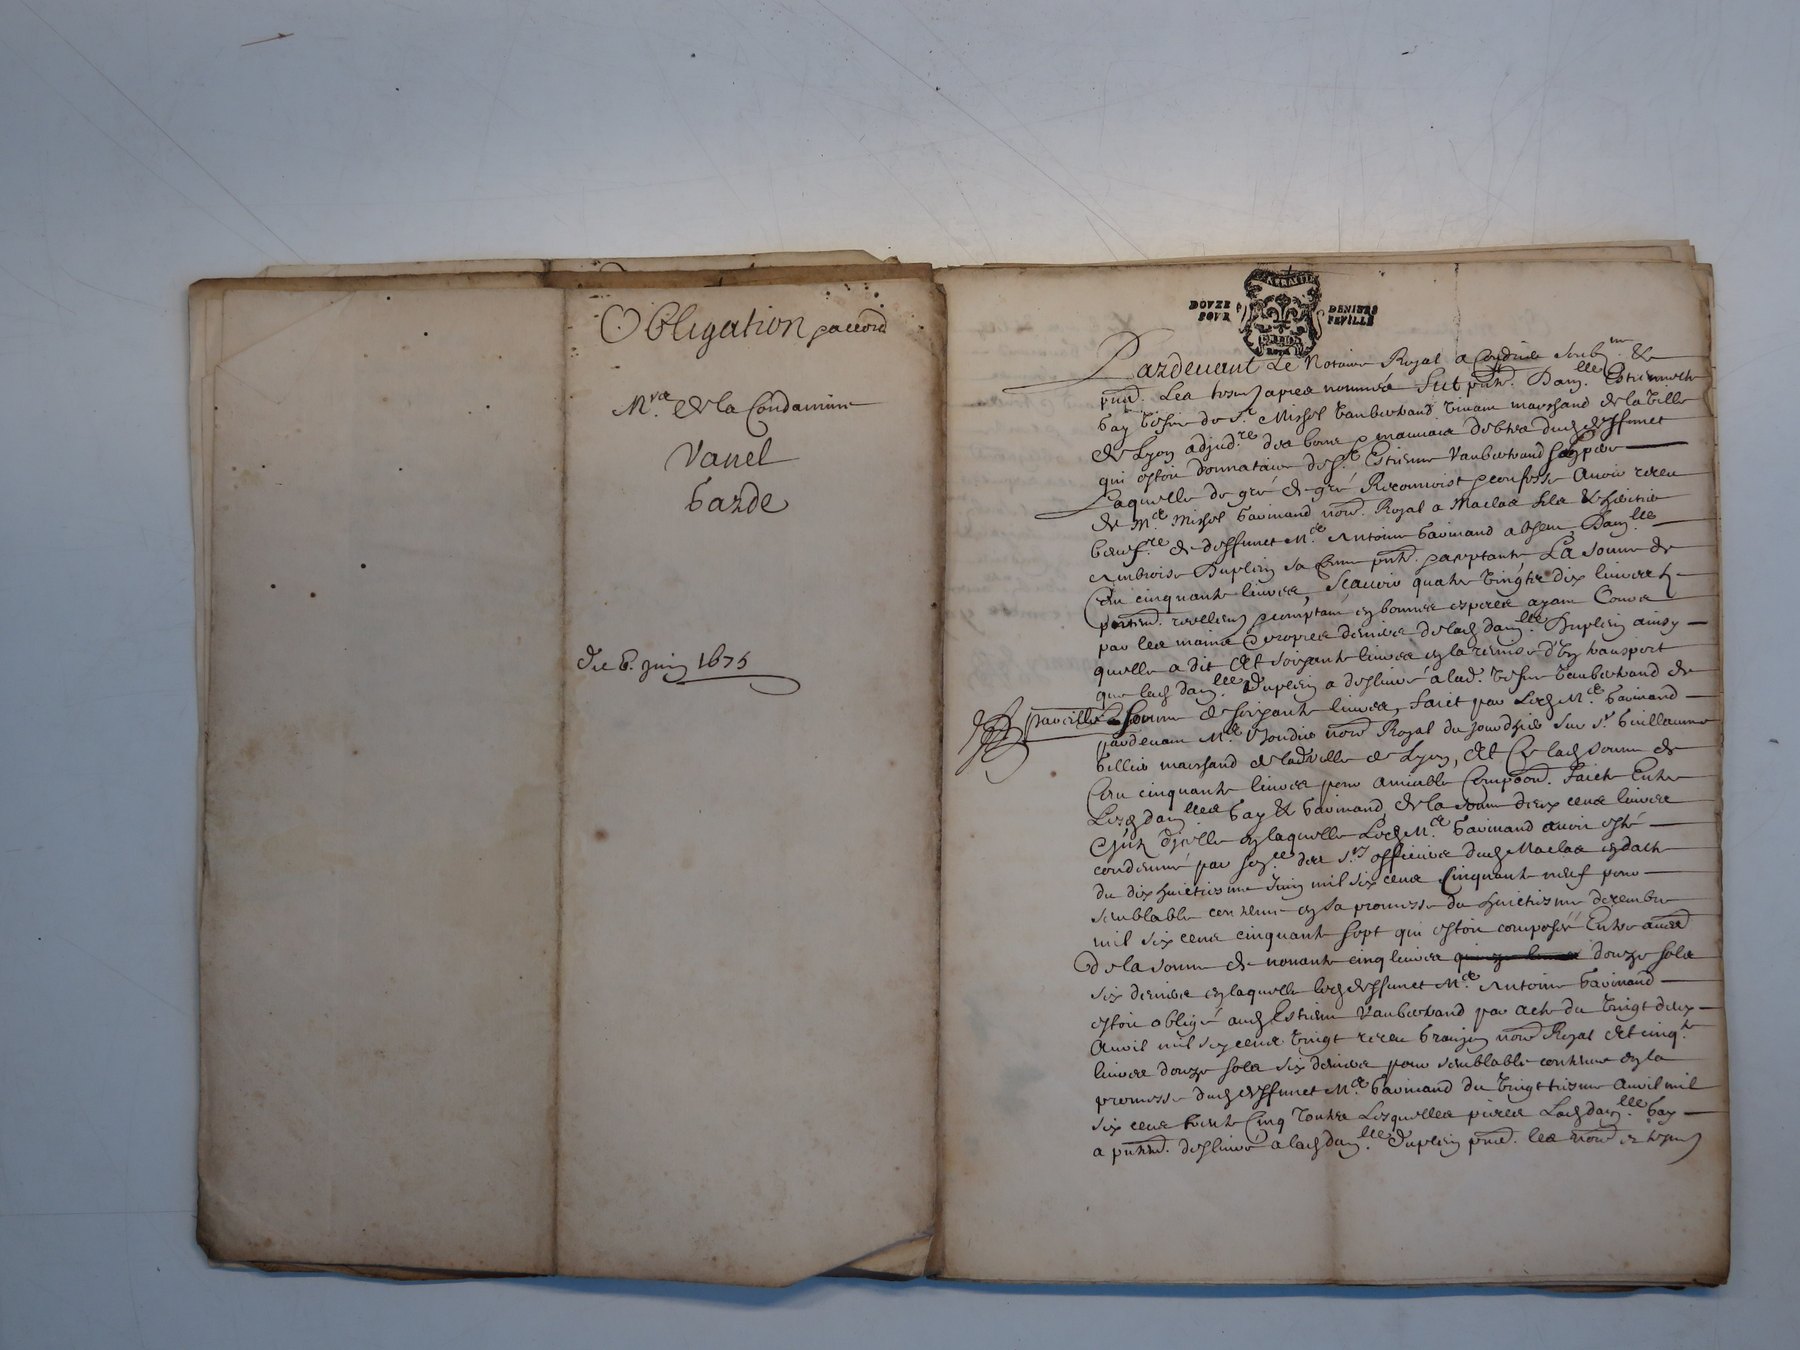 Obligation paccord
Mre de la Condamine
Vanel
Garde
Du 6. juin 1675
DOVZE DENIERS
POVR FEVILLE
Pardevant Le Notaire Royal a Condrieu soubzne. &
pnt. Les tesmoings apres nommés fut pnte. Damlle Estiennette
Gay vefve de Sr Michel Vanbertrand vivant marchand de la ville
de Lyon adjudre des bons & mauvais debtes dud deffunct
qui estoit donnataire de Sr Estienne Vanbertrand son pere
Laquelle de gré & gré Recournoist & confesse avoir receu
de Me Michel Gavinand nore. Royal a Maclas fils & heritier
benefre de deffunct Me Antoine Gavinand absent Damlle
Ambroise Duplein sa femme pnte. paceptante La somme de
Cent cinquante livres, scavoir quatre vingts dix livres
pntemt. reellemt & comptant en bonnes especes ayant cours
par les mains & propres deniers de lad damlle Duplein ainsy
quelle a dit Et soixante livres en la remise d'un transport
que lad damlle Duplein a deslivré a lad. vefve Vanbertrand de
pareille somme de soixante livres, faict par led Me Gavinand
pardevant Me nore Royal du jourdhuy sur sr Guillaume
marchand de lad ville de Lyon, Et ce lad somme de
Cent cinquante livres pour amiable composon. faicte Entre
Lesd damlles Gay & Gavinand de la somme deux cens livres
en laquelle Led Me Gavinand avoit esté
condemné par sence des srs officiers dud Maclas en datte
du dixhuictiesme juin mil six cens Cinquante neuf pour
semblable contenue en sa promesse du huictiesme decembre
mil six cens cinquante sept qui estoit composée Entre aues
De la somme de nonante cinq livres douze sols
six deniers en laquelle led deffunct Me Antoine Gavinand
estoit obligé aud Estienne Vanbertrand par acte du vingt deux
Avril mil six cens vingt receu nore Royal Et cinqte
livres douze sols six deniers pour semblable contenue en la
promesse dud deffunct Me Gavinand du vingttiesme Avril mil
six cens trente Cinq Toutes Lesquelles pieces Lad damlle Gay
a pntemt. deslivré a lad damlle Duplein pnt. les nore & tesmoings